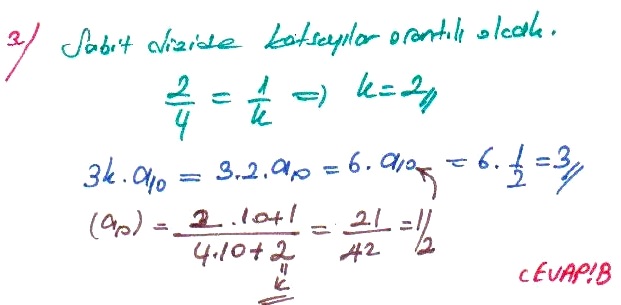 3/ Sabit dizide katsayılar orantılı olcak.
2/4 = 1/k ⇒ k=2//
3k.a₁₀ = 3.2.a₁₀ = 6.a₁₀ = 6.1/2 = 3//
(a₁₀) = 2.10+1/4.10+2 = 21/42 = 1/2
"
k
CEVAP!B